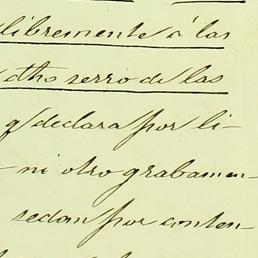 libremente á las
dho serro de las
q/ declara por li-
ni otro grabamen-
sedan por conten-